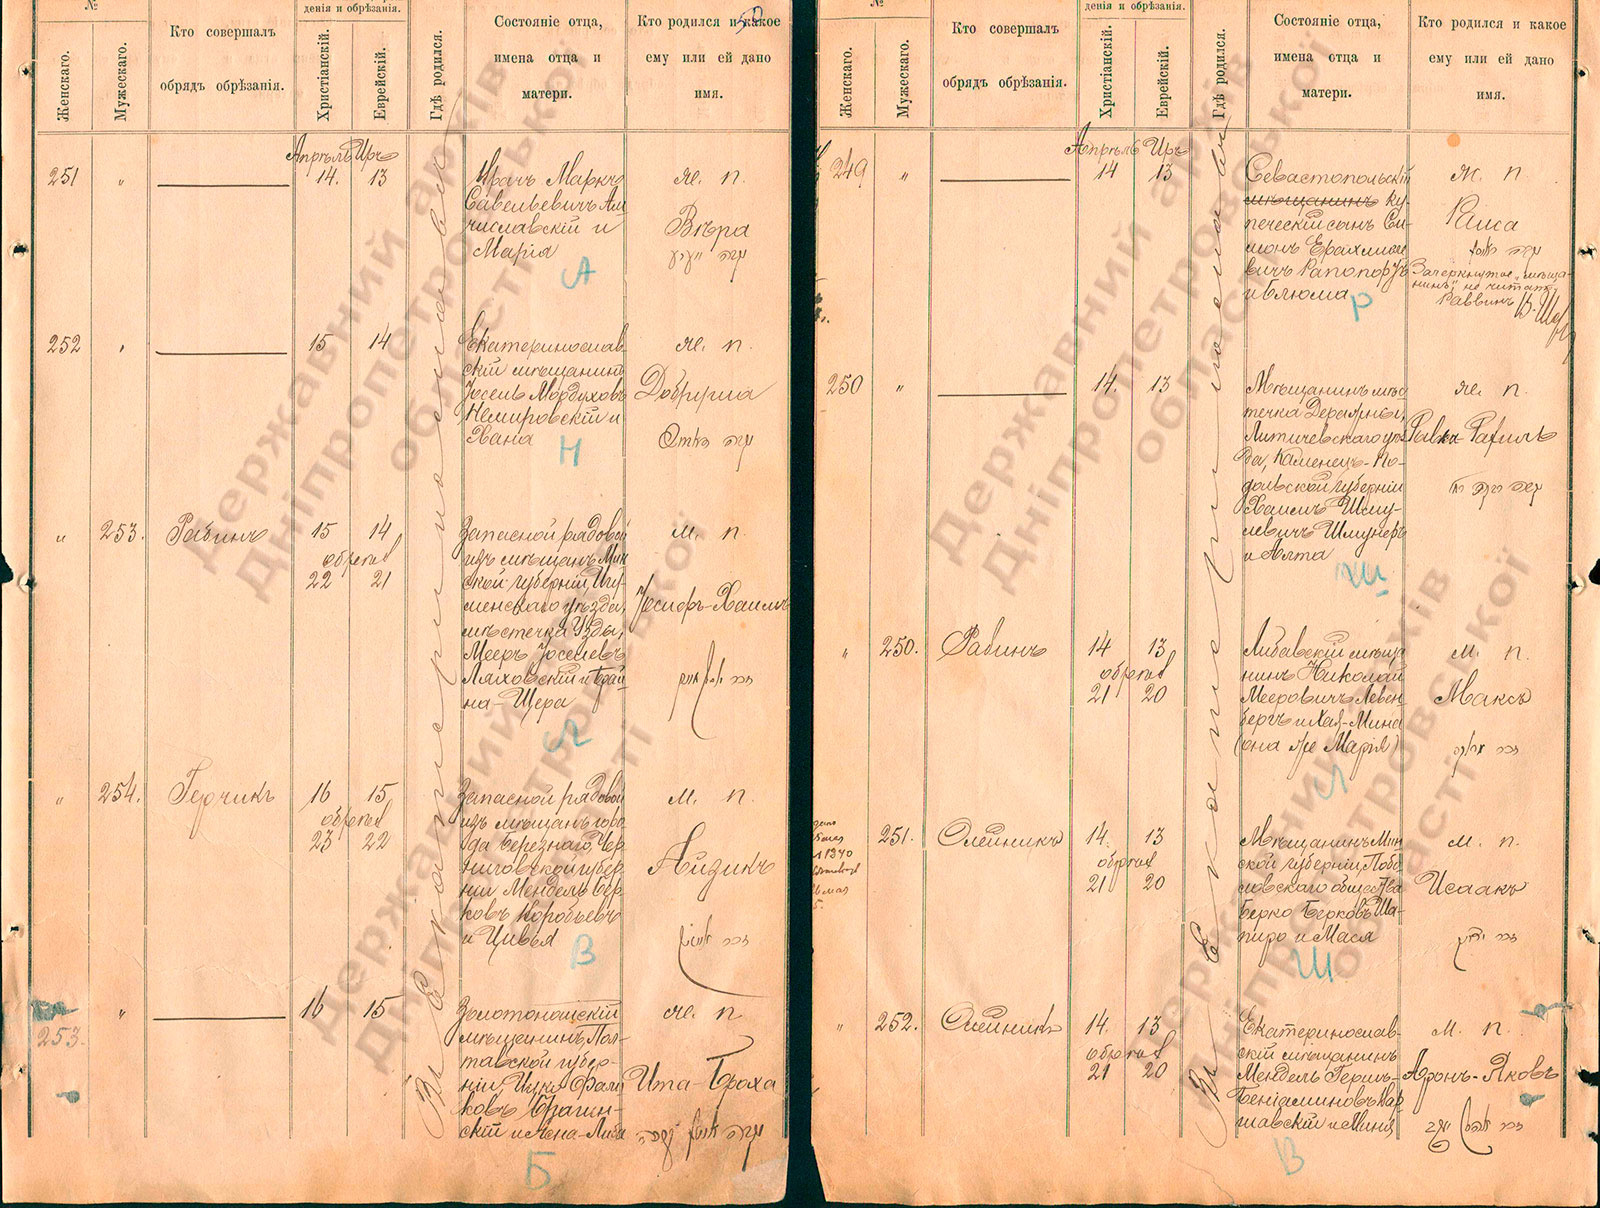 №
дения и обрѣзания.
Женскаго.
Мужескаго.
Кто совершалъ
обрядъ обрѣзанія.
Христіанскій.
Еврейскій.
Гдѣ родился.
Состояніе отца,
имена отца и
матери.
Кто родился и какое
ему или ей дано
имя.
Въ Екатеринославѣ
Апрѣль Иръ
251 " 14. 13
Врачъ Маркъ
Савельевичъ Ам
числавскій и
Марія
А
же. п.
Вѣра
252 " 15 14
Екатеринослав-
скій мѣщанинъ
Іосель Мордуховъ
Немировскій и
Хана
Н
же. п.
Добруша
" 253. Рабинъ 15 14
обрѣзанъ
22 21
Запасной рядовой
изъ мѣщанъ Мин
ской губерніи Игу-
менскаго уѣзда,
мѣстечка Узды,
Мееръ Іоселевъ
Ляховскій и Брай
на-Шера
Л
м. п.
Іосифъ-Хаимъ
" 254. Герчикъ 16 15
обрѣзанъ
23 22
Запасной рядовой
изъ мѣщанъ горо-
да Березнаго, Чер
ниговской губер
ніи Мендель Бер
ковъ Воробьевъ
и Цивья
В
м. п.
Айзикъ
253. " 16 15
Золотоношскій
мѣщанинъ, Пол-
тавской губер-
ніи,
ковъ Брагин-
скій и Хена-Либа
Б
же. п.
Ита-Броха
№
дения и обрѣзания.
Женскаго.
Мужескаго.
Кто совершалъ
обрядъ обрѣзанія.
Христіанскій.
Еврейскій.
Гдѣ родился.
Состояніе отца,
имена отца и
матери.
Кто родился и какое
ему или ей дано
имя.
Въ Екатеринославѣ
Апрѣль Иръ
249 " 14 13
Севастопольскій
мѣщанинъ ку-
печескій сынъ Си-
монъ Ерахмиле
вичъ Рапопортъ
и Блюма
Р
ж. п.
Раиса
Зачеркнутое „мѣща-
нинъ" не читать
Раввинъ
250 " 14. 13
Мѣщанинъ мѣс
течка Деражны,
Литичевскаго уѣз
да, Каменецъ-По-
дольской губерніи
Хаимъ Шму-
левичъ Шмунеръ
и Алта
Ш
же. п.
Ривка-Рахиль
" 250. Рабинъ 14 13
обрѣзанъ
21 20
Либавскій мѣща
нинъ Николай
Мееровичъ Левен
бергъ и Хая-Мина
(она же Марія)
Л
м. п.
Максъ
251. Олейникъ 14. 13
обрѣзанъ
21 20
Мѣщанинъ Мин
ской губерніи
ловскаго общества
Берко Берковъ Ша-
пиро и Мася
Ш
м. п.
Исаакъ
" 252. Олейникъ 14. 13
обрѣзанъ
21 20
Екатеринослав-
скій мѣщанинъ
Мендель Гершъ-
Беніаминовъ Вар
шавскій и Миня
В
м. п.
Аронъ-Яковъ
Державний архів
Дніпропетровської
області